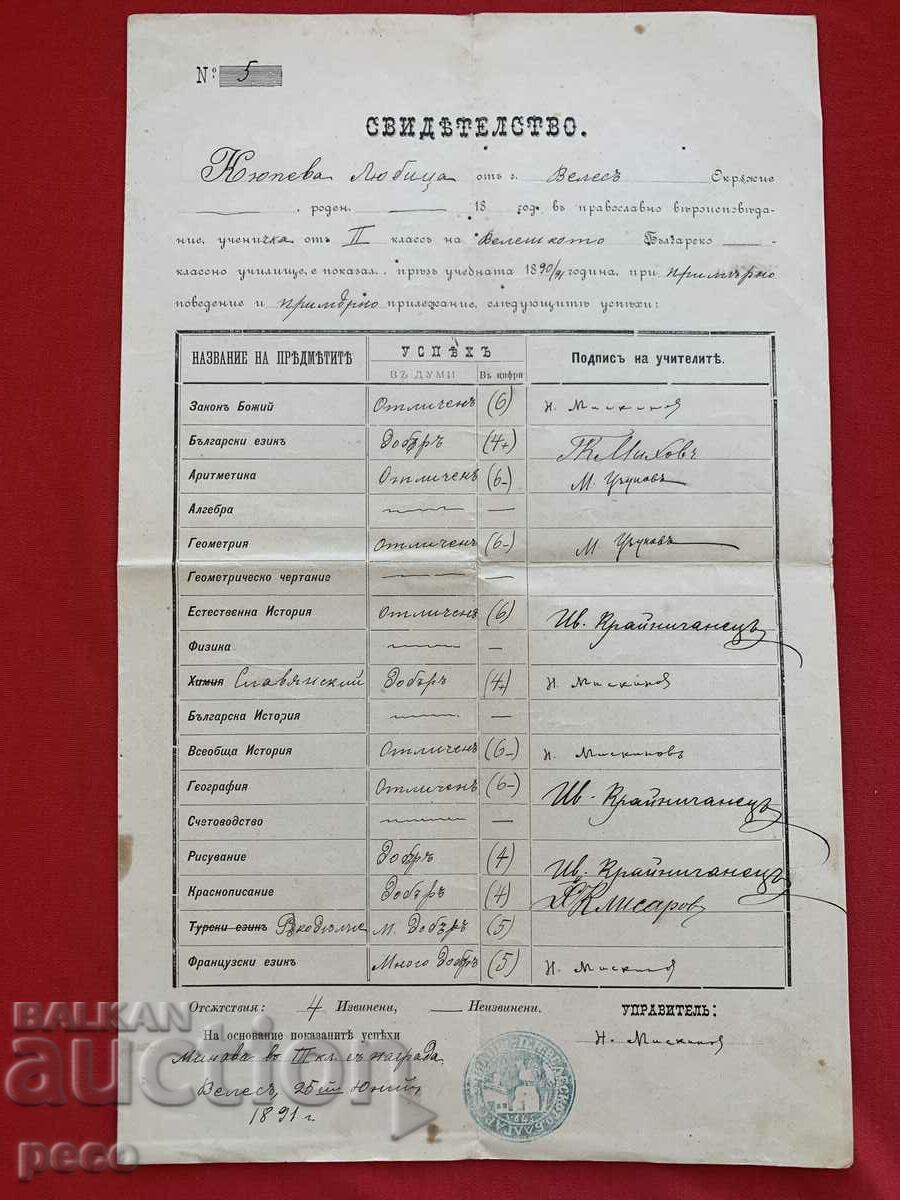 № 5
СВИДѢТЕЛСТВО.
Кюпева Любица отъ г. Велесъ Скрѫжие
, роден. 18 год въ православно вѣроисповѣда-
ние, ученичка отъ II классъ на Велешкото Българско
классно училище, е показал.. прѣзъ учебната 1890/91 година, при примѣрно
поведение и примѣрно прилежание, слѣдующитѣ успѣхи:
НАЗВАНИЕ НА ПРѢДМѢТИТѢ УСПѢХЪ Подписъ на учителитѣ.
ВЪ ДУМИ Въ цифри
Законъ Божий Отличенъ (6) Н. Мискинов
Български езикъ Добъръ (4+) Миховъ
Аритметика Отличенъ (6-) М. Узуновъ
Алгебра — —
Геометрия Отличенъ (6-) М Узуновъ
Геометрическо чертание — —
Естественна История Отличенъ (6) Ив. Крайничанецъ
Физика — —
Химия Славянский Добъръ (4+) Н. Мискинов
Българска История — —
Всеобща История Отличенъ (6-) Н. Мискиновъ
География Отличенъ (6-) Ив. Крайничанецъ
Счетоводство — —
Рисувание Добръ (4) Ив. Крайничанецъ
Краснописание Добъръ (4) Клисаров
Турски езикъ Рѫкодѣлие М. Добъръ (5)
Французски езикъ Много Добръ (5) Н. Мискинов
Отсѫтствия: 4 Извинени, — Неизвинени. УПРАВИТЕЛЬ:
На основание показанитѣ успѣхи Н. Мискинов
Минова в III кл. съ награда.
Велесъ, 25ий Юний,
1891 г
BALKAN
auction
peco